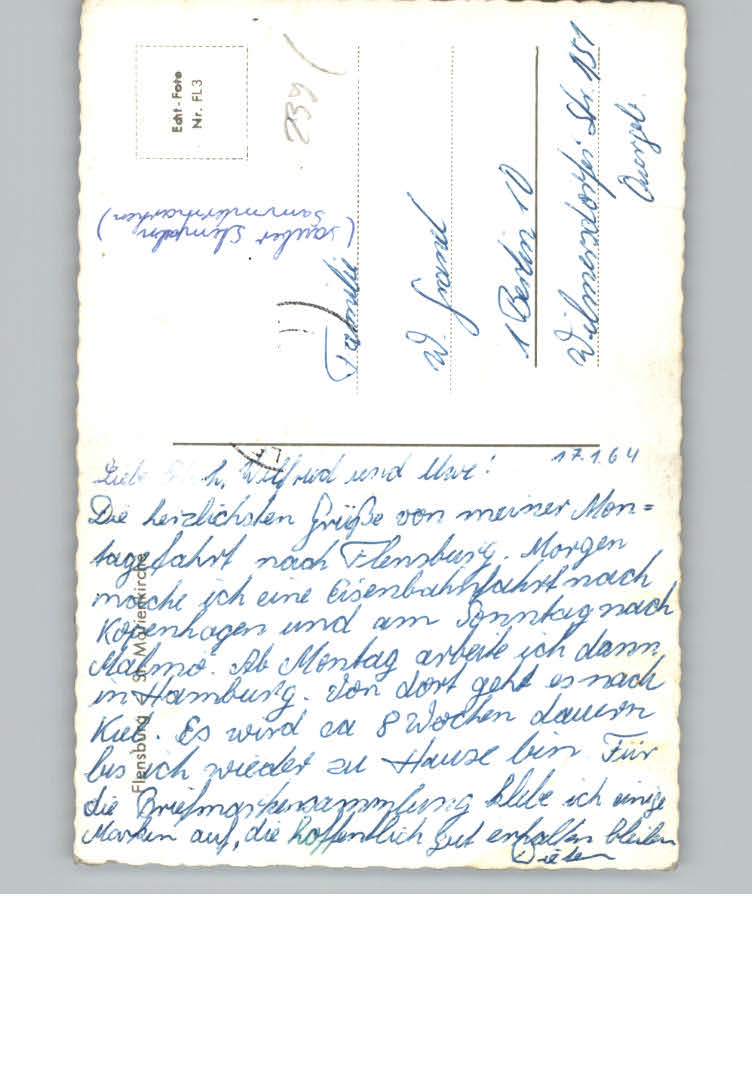 Echt-Foto
Nr. FL3
239
(sauber stempeln
Sammlermarken)
Familie
W.
1 Berlin 10
Wilmersdorfer Str. 151
Quergeb.
17.1.64
Wilfried und Uwe!
Die herzlichsten Grüße von meiner Mon=
tagefahrt nach Flensburg. Morgen
mache ich eine Eisenbahnfahrt nach
Kopenhagen und am Sonntag nach
Malmö. Ab Montag arbeite ich dann
in Hamburg. Von dort geht es nach
Kiel. Es wird ca 8 Wochen dauern
bis ich wieder zu Hause bin. Für
die Briefmarkensammlung klebe ich einige
Marken auf, die hoffentlich gut erhalten bleiben
Dieter
Flensburg / St. Marienkirche